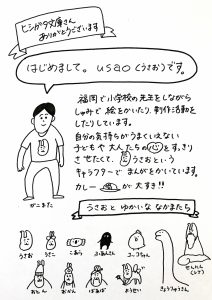 ヒシガタ文庫さん
ありがとうございます
はじめまして。usao(うさお)です。
福岡で小学校の先生をしながら
しゅみで絵をかいたり、創作活動を
したりしています。
自分の気持ちがうまくいえない
子どもや大人たちの心をすっきり
させたくて、うさおという
キャラクターでまんがをかいています。
カレーが大すき!!
がにまた
うさおとゆかいななかまたち
うさお
うさこ
こあら
ふあんさん
コップちゃん
きょうりゅうさん
おとん
おかん
ばあば
ようせい